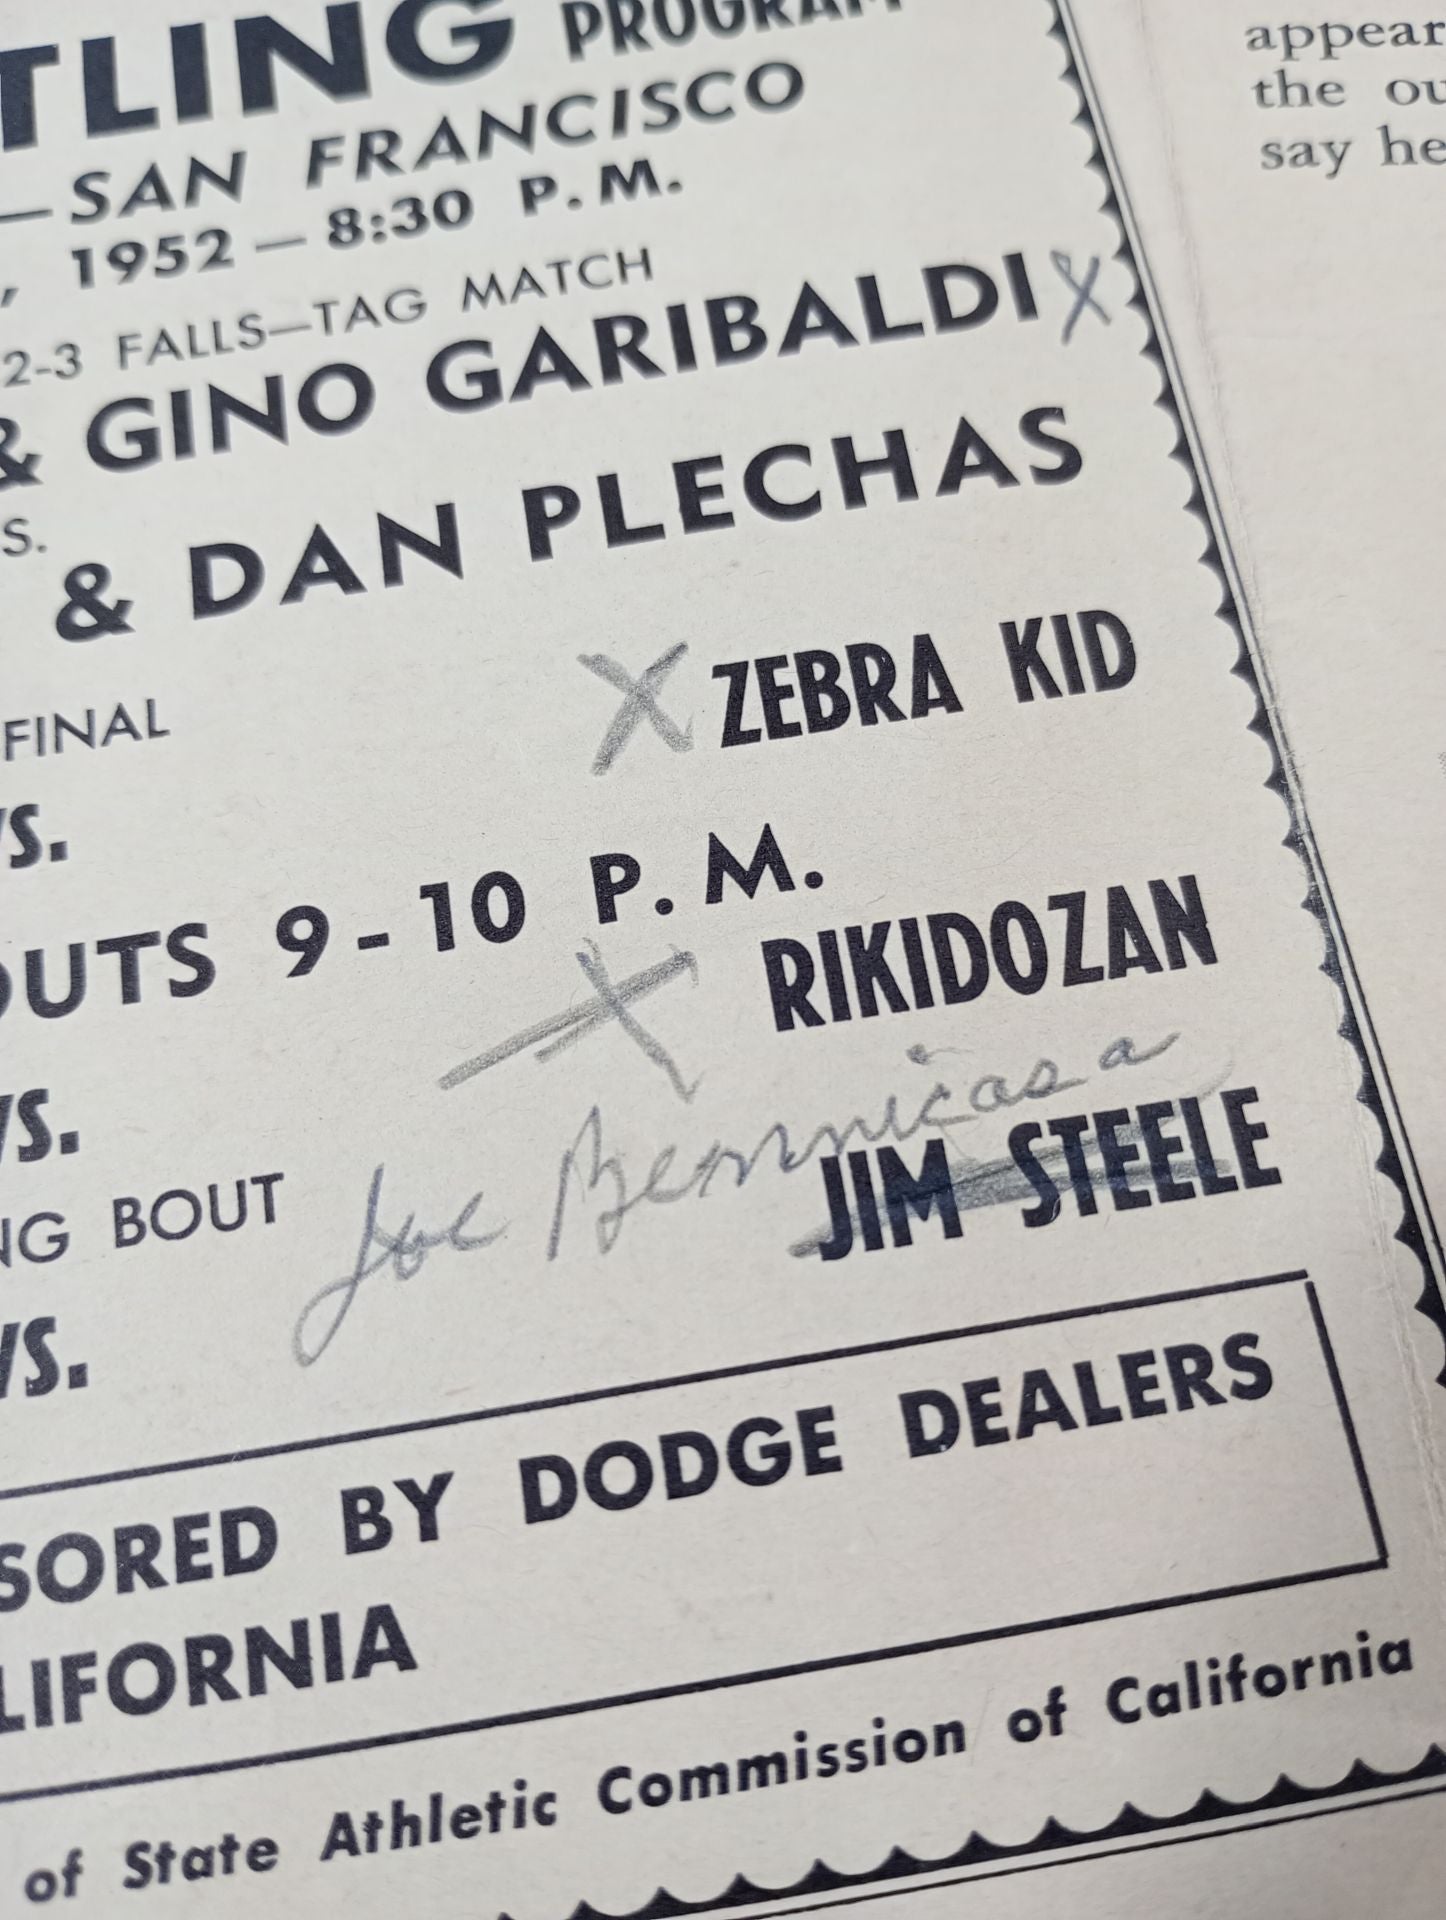 TLING PROGRAM
—SAN FRANCISCO
, 1952 — 8:30 P.M.
2-3 FALLS—TAG MATCH
& GINO GARIBALDI X
S.
& DAN PLECHAS
FINAL
X ZEBRA KID
VS.
OUTS 9-10 P.M.
X RIKIDOZAN
VS.
NG BOUT
Joe Bennicasa
JIM STEELE
VS.
SORED BY DODGE DEALERS
LIFORNIA
of State Athletic Commission of California
appear
the ou
say he